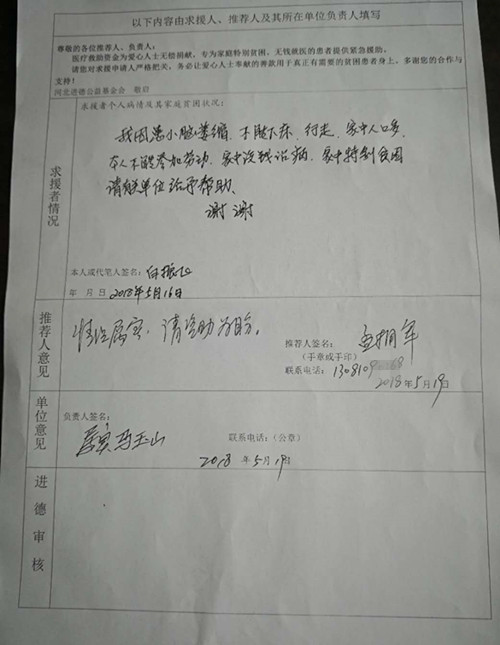 以下内容由求援人、推荐人及其所在单位负责人填写
尊敬的各位推荐人、负责人：
医疗救助资金为爱心人士无偿捐献，专为家庭特别贫困、无钱就医的患者提供紧急援助。
请您对求援申请人严格把关，务必让爱心人士奉献的善款用于真正有需要的贫困患者身上，多谢您的合作与
支持！
河北进德公益基金会 敬启
求援者情况
求援者个人病情及其家庭贫困状况：
我因患小脑萎缩，不能下床，行走，家中人口多，
本人不能参加劳动，家中没钱治病，家中特别贫困
请贵单位给予帮助、
谢谢
本人或代笔人签名：白振
年 月 日 2018年5月16日
推荐人意见
情况属实，请资助为盼。
推荐人签名：
（手章或手印）
联系电话：1308109
2018年5月19日
单位意见
负责人签名：
属实 马玉山
联系电话：（公章）
2018年5月19日
进德审核